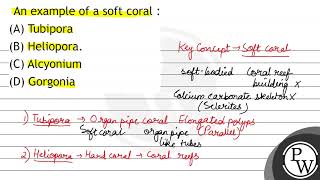 An example of a soft coral :
(A) Tubipora
(B) Heliopora.
(C) Alcyonium
(D) Gorgonia
Key Concept → Soft coral
soft-bodied coral reef
building x
Calcium carbonate skeleton x
(Sclerites)
1) Tubipora → Organ pipe coral Elongated polyps
Soft coral organ pipe (Parallel)
like tubes
2) Heliopora → Hard coral → Coral reefs
PW